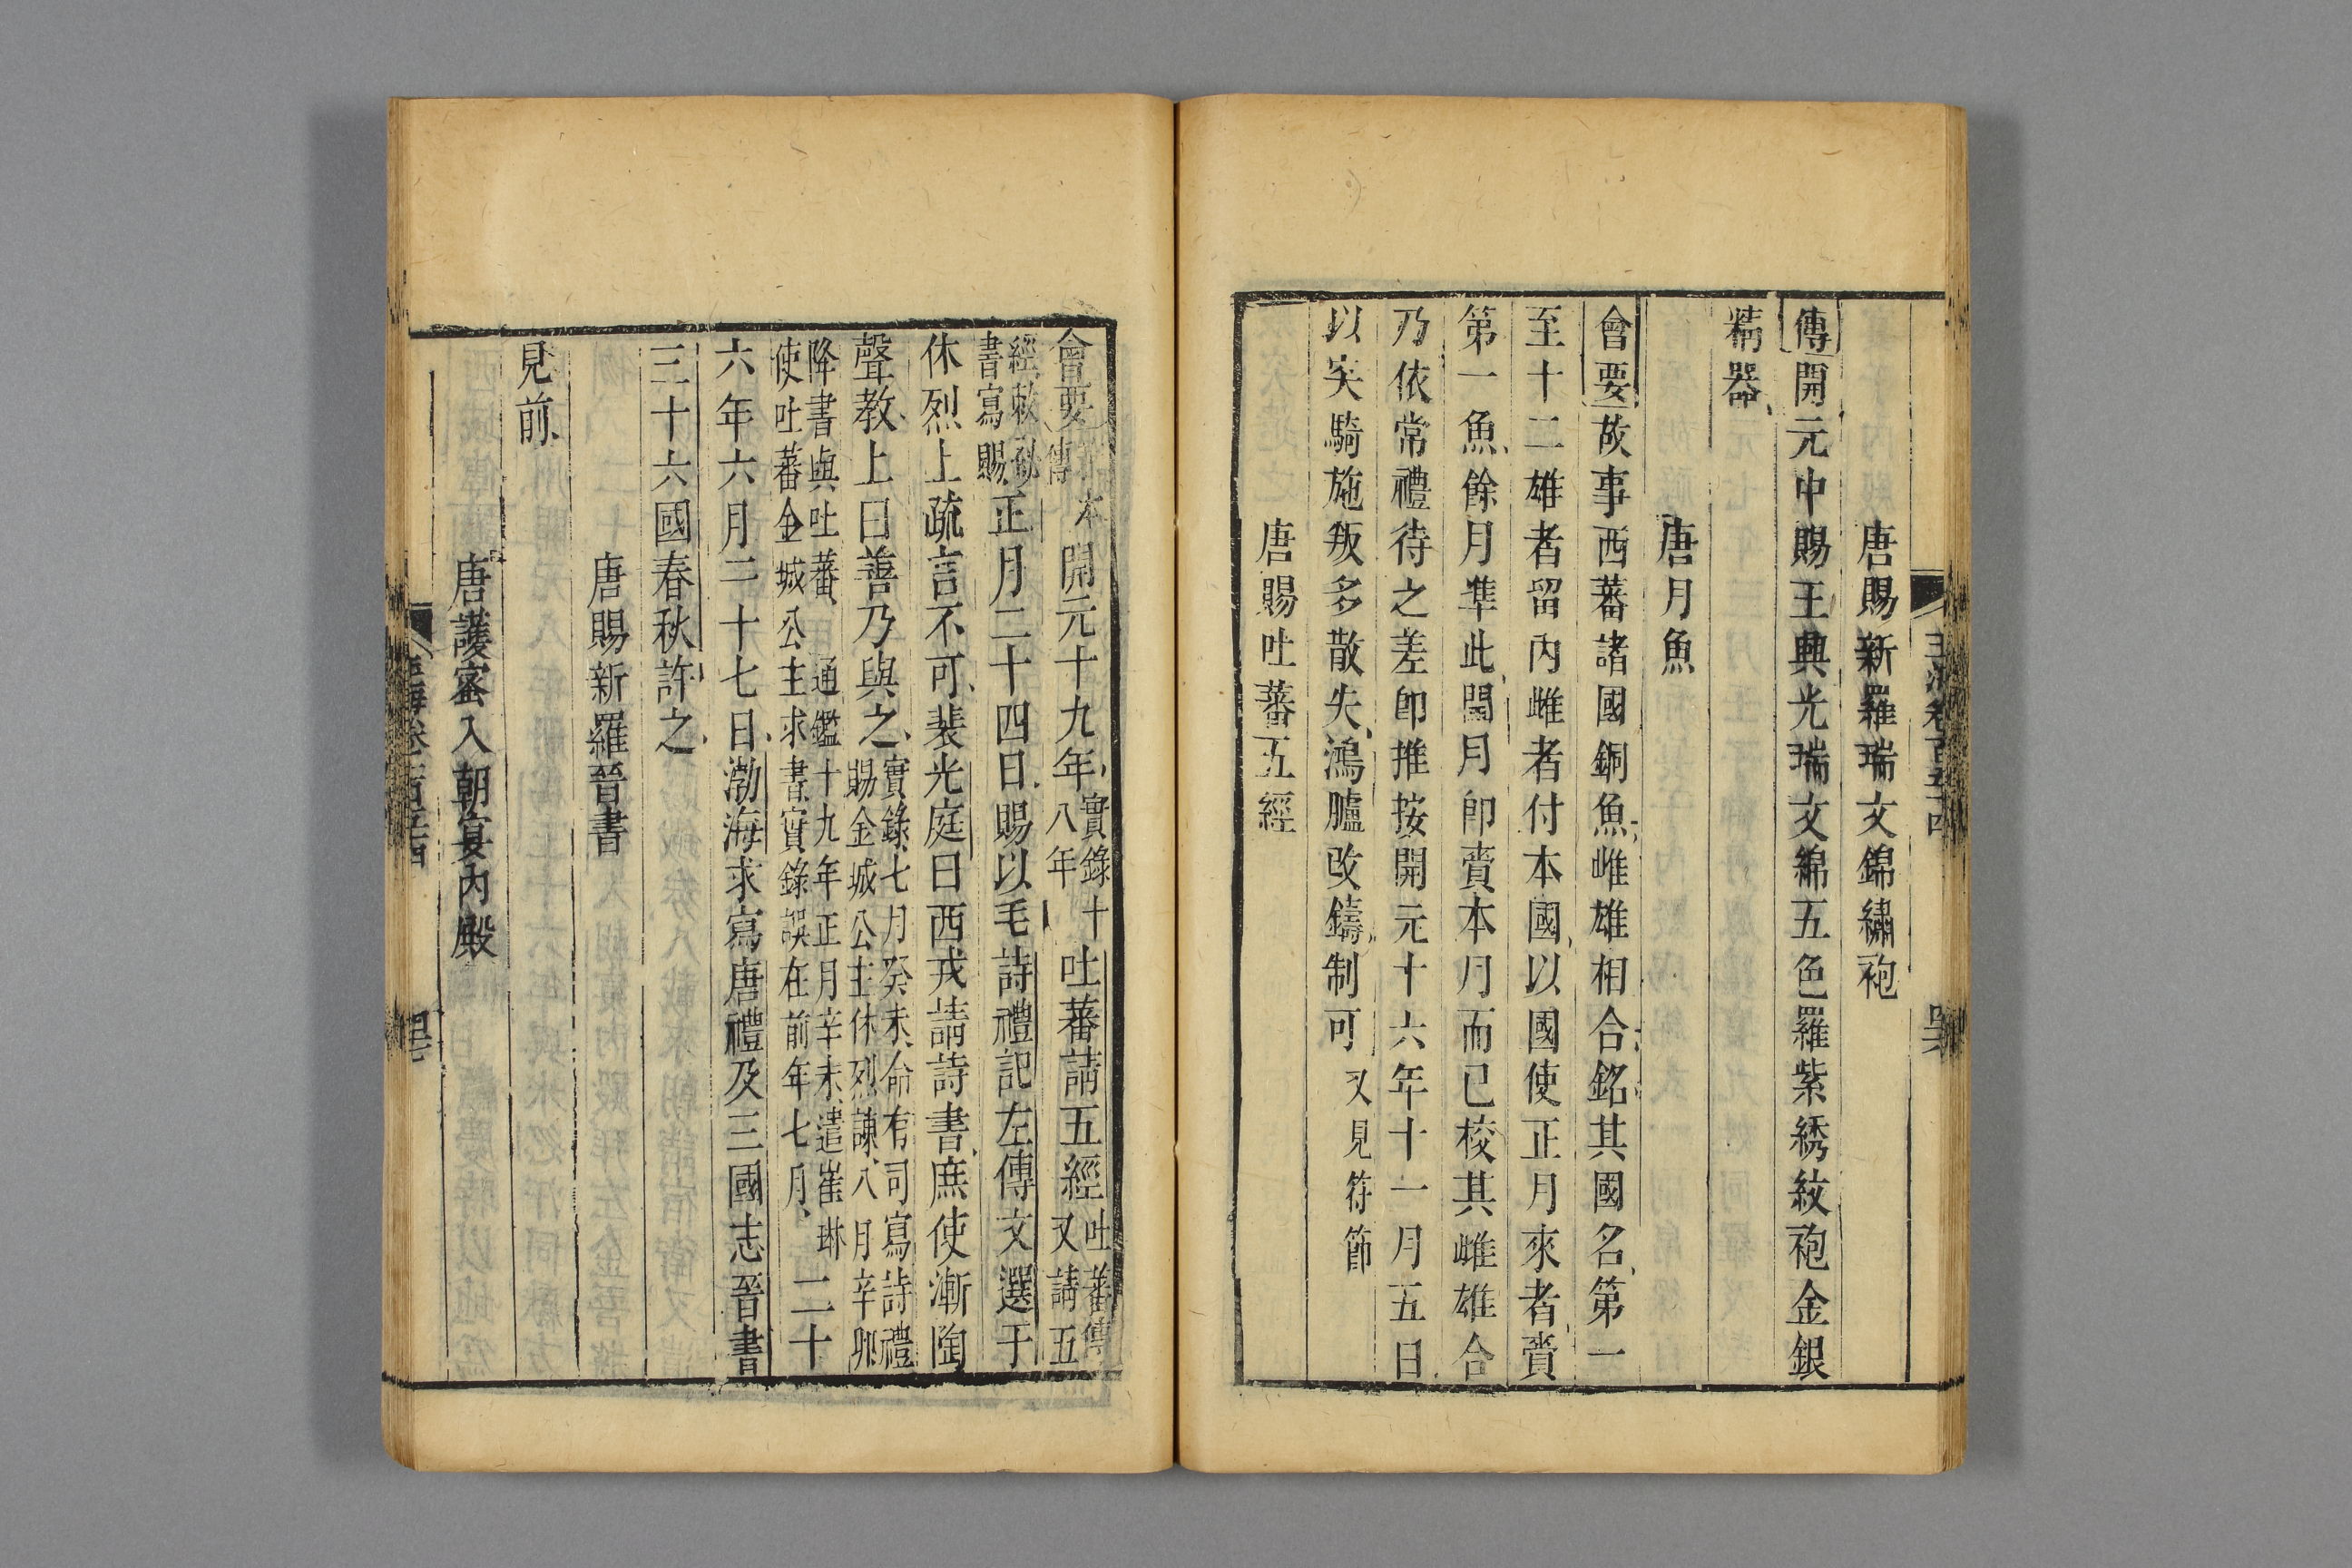 唐賜新羅瑞文錦繡袍
傳開元中賜王興光瑞文錦五色羅紫綉紋袍金銀
精器
唐月魚
會要故事西蕃諸國銅魚雌雄相合銘其國名第一
至十二雄者留內雌者付本國以國使正月來者賫
第一魚餘月準此閏月卽賫本月而已校其雌雄合
乃依常禮待之差卽推按開元十六年十一月五日
以突騎施叛多散失鴻臚改鑄制可又見符節
唐賜吐蕃五經
會要傳本開元十九年實錄十八年吐蕃請五經吐蕃傳又請五
經敕秘書寫賜正月二十四日賜以毛詩禮記左傳文選于
休烈上疏言不可裴光庭曰西戎請詩書庶使漸陶
聲教上曰善乃與之實錄七月癸未命有司寫詩禮賜金城公主休烈諫八月辛卯
降書與吐蕃通鑑十九年正月辛未遣崔琳使吐蕃金城公主求書實錄誤在前年七月二十
六年六月二十七日渤海求寫唐禮及三國志晉書
三十六國春秋許之
唐賜新羅晉書
見前
唐護蜜入朝宴內殿